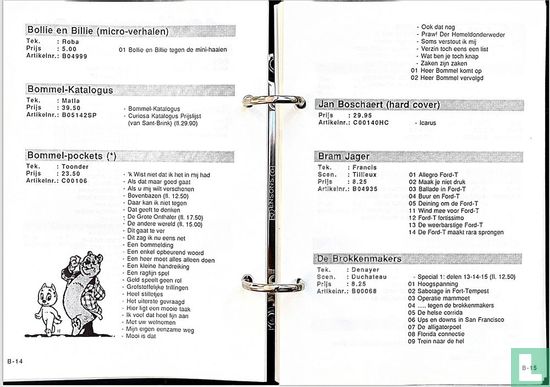 Bollie en Billie (micro-verhalen)
Tek. : Roba
Prijs : 5.00 01 Bollie en Billie tegen de mini-haaien
Artikelnr.: B04999
Bommel-Katalogus
Tek. : Matla
Prijs : 39.50 - Bommel-Katalogus
Artikelnr.: B05142SP - Curiosa Katalogus Prijslijst
(van Sant-Brink) (fl.29.90)
Bommel-pockets (*)
Tek. : Toonder
Prijs : 23.50 - 'k Wist niet dat ik het in mij had
Artikelnr.: C00106 - Als dat maar goed gaat
- Als u mij wilt verschonen
- Bovenbazen (fl. 12.50)
- Daar kan ik niet tegen
- Dat geeft te denken
- De Grote Onthaler (fl. 17.50)
- De andere wereld (fl. 15.00)
- Dit gaat te ver
- Dit zag ik nu eens net
- Een bommelding
- Een enkel opbeurend woord
- Een heer moet alles alleen doen
- Een kleine handreiking
- Een ragfijn spel
- Geld speelt geen rol
- Grofstoffelijke trillingen
- Heel stilletjes
- Het uiterste gevraagd
- Hier ligt een mooie taak
- Ik voel dat heel fijn aan
- Met uw welnemen
- Mijn eigen eenzame weg
- Mooi is dat
B-14
- Ook dat nog
- Praw! Der Hemeldonderweder
- Soms verstout ik mij
- Verzin toch eens een list
- Wat ben je toch knap
- Zaken zijn zaken
01 Heer Bommel komt op
02 Heer Bommel vervolgd
Jan Boschaert (hard cover)
Prijs : 29.95
Artikelnr.: C00140HC - Icarus
Bram Jager
Tek. : Francis
Scen. : Tillieux 01 Allegro Ford-T
Prijs : 8.25 02 Maak je niet druk
Artikelnr.: B04935 03 Ballade in Ford-T
04 Buur en Ford-T
05 Deining om de Ford-T
11 Wind mee voor Ford-T
12 Ford-T fortissimo
13 De weerbarstige Ford-T
14 De Ford-T maakt rara sprongen
De Brokkenmakers
Tek. : Denayer - Special 1: delen 13-14-15 (fl. 12.50)
Scen. : Duchateau 01 Hoogspanning
Prijs : 8.25 02 Sabotage in Fort-Tempest
Artikelnr.: B00068 03 Operatie mammoet
04 ..... tegen de brokkenmakers
05 De helse corrida
06 Ups en downs in San Francisco
07 De alligatorpoel
08 Florida connectie
09 Trein naar de hel
B-15